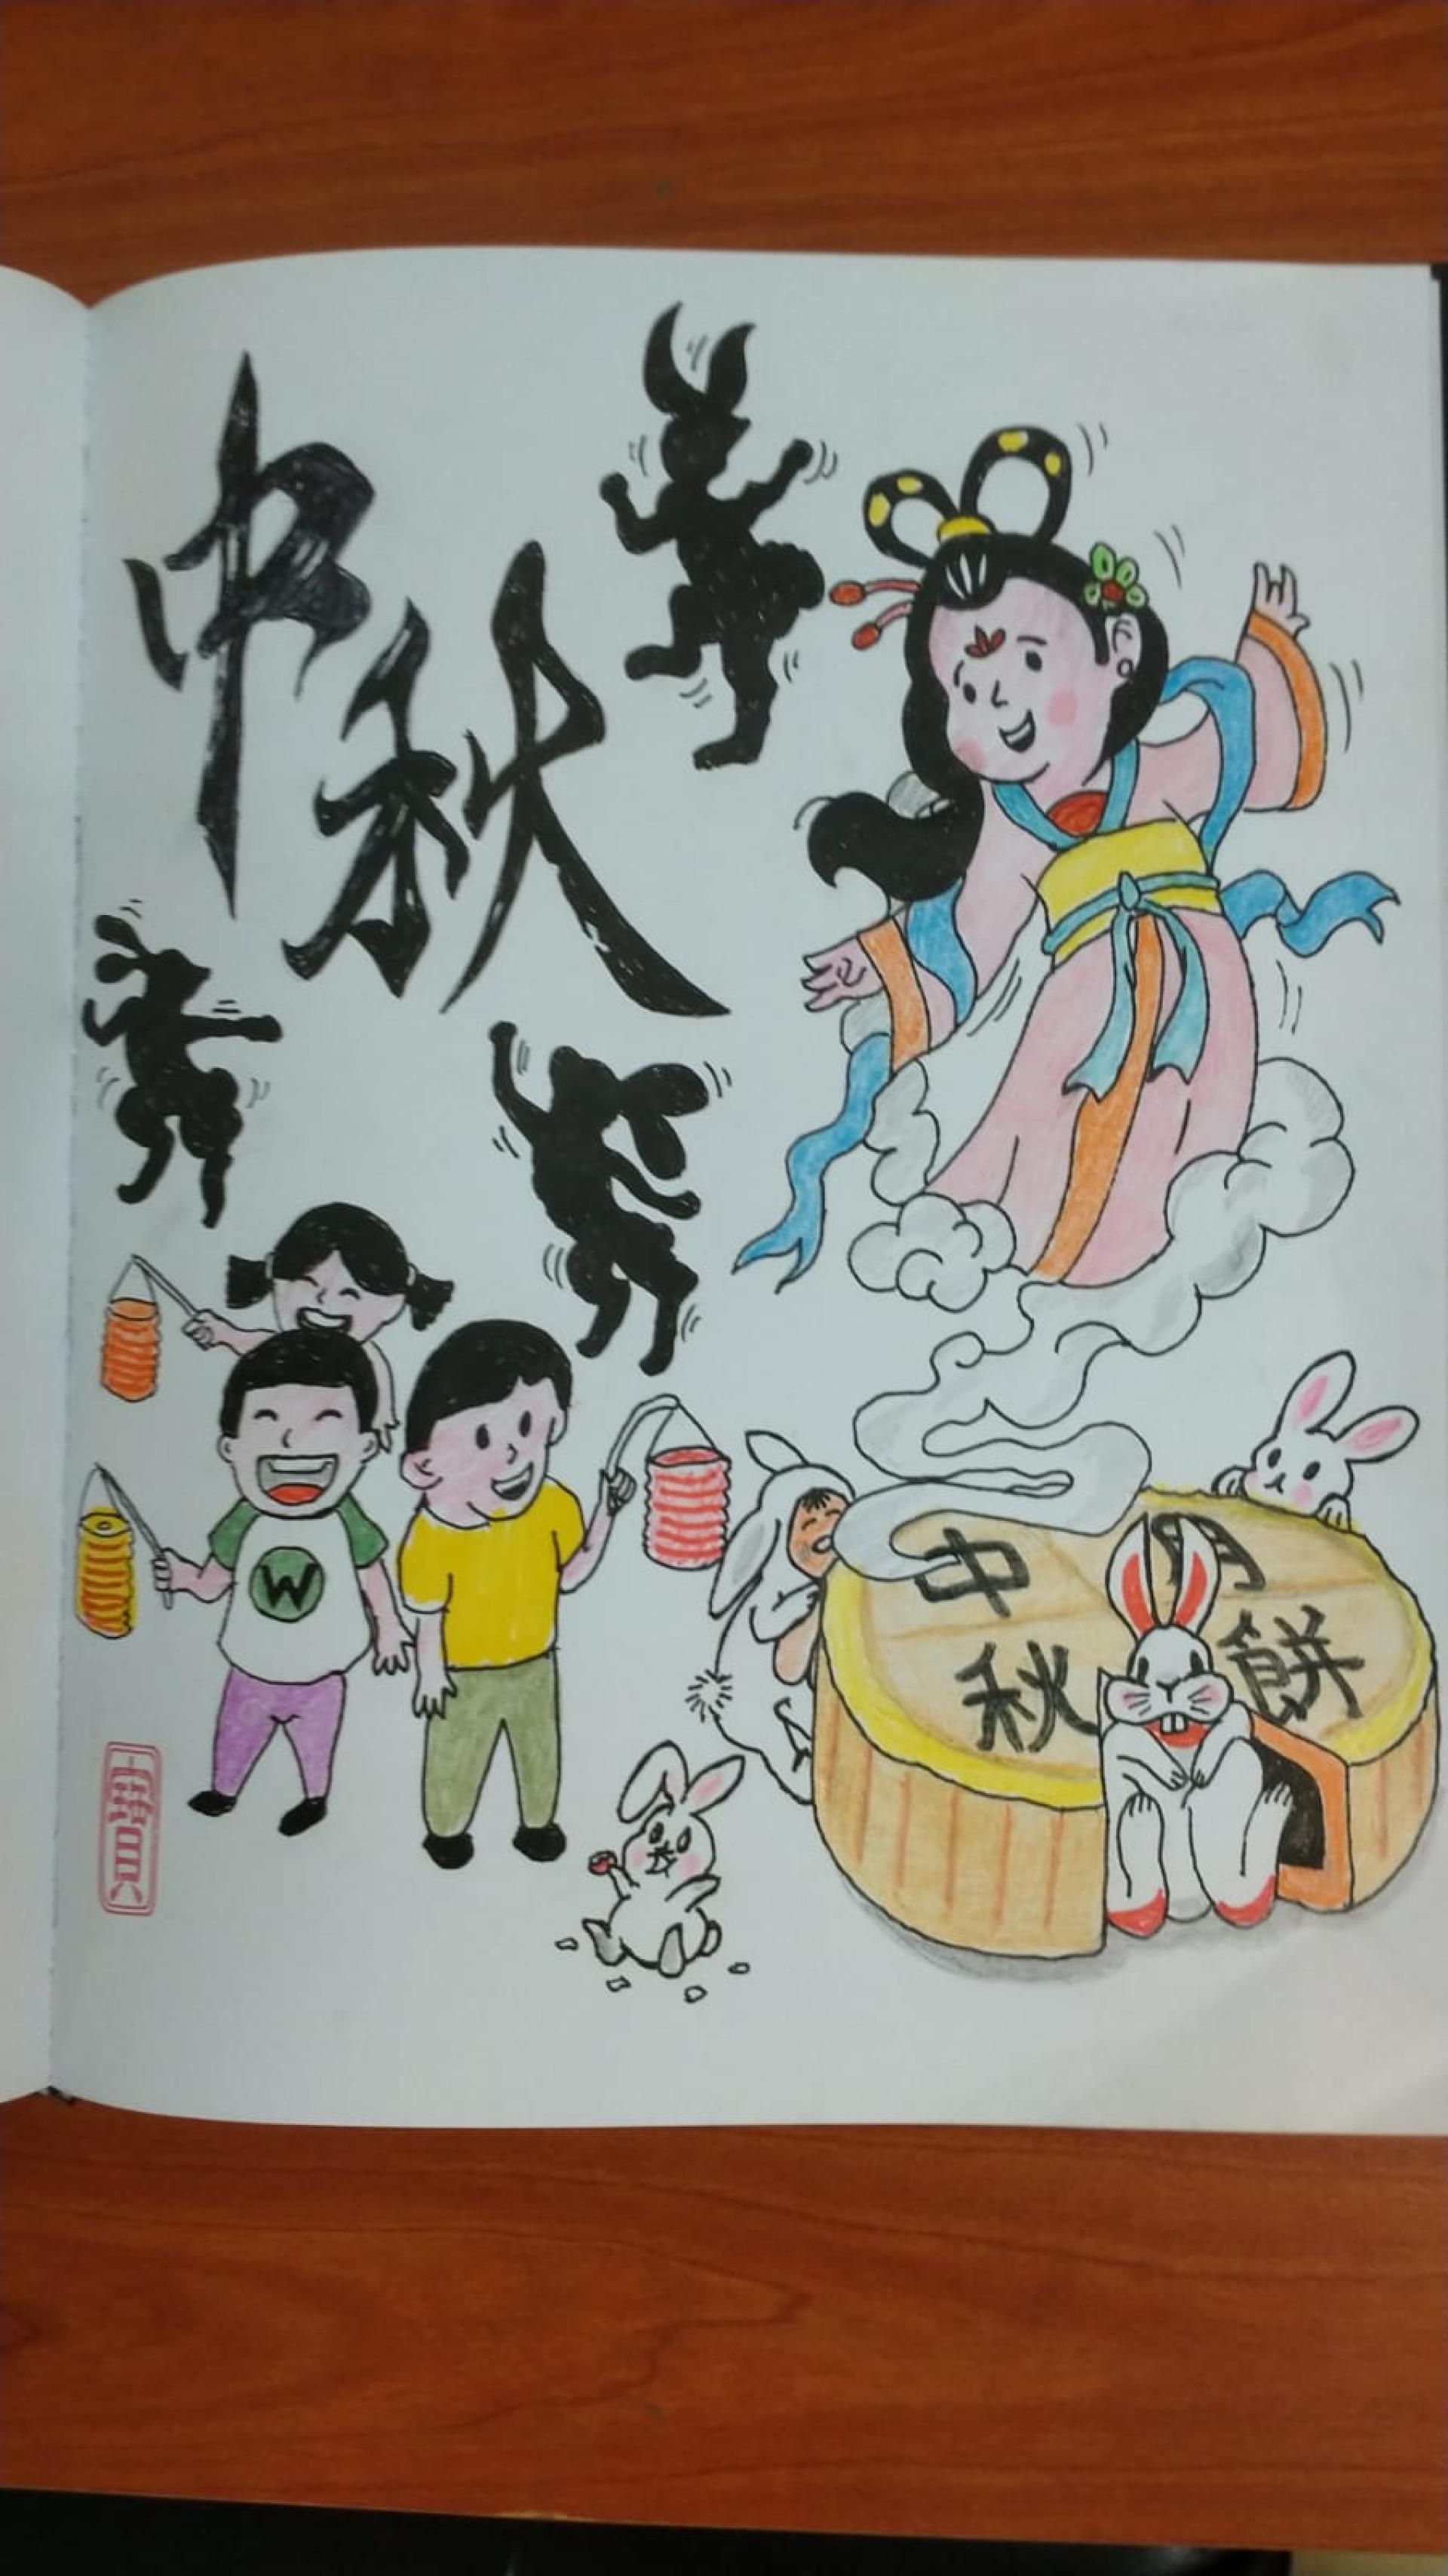 中秋
W
中秋
月餅